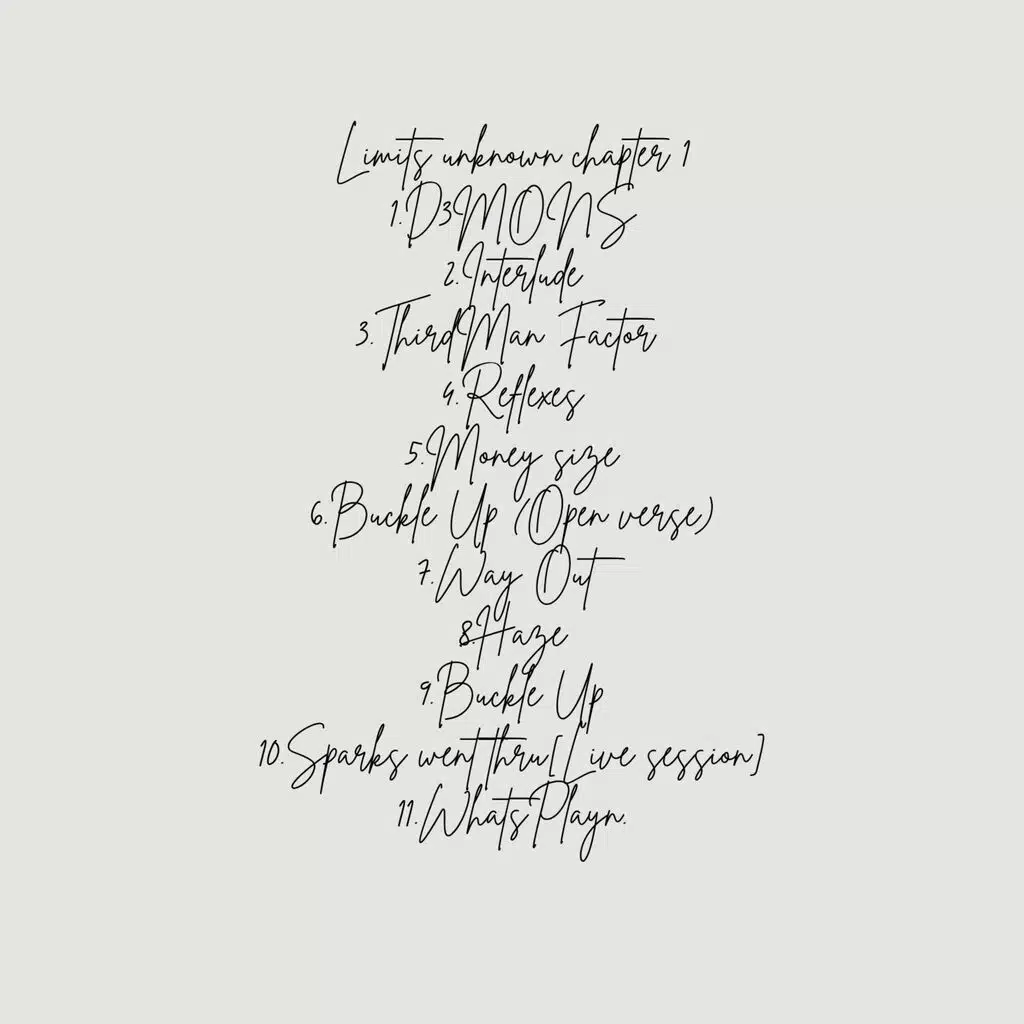 Limits unknown chapter 1
1.D3MONS
2.Interlude
3.ThirdMan Factor
4.Reflexes
5.Money size
6.Buckle Up (Open verse)
7.Way Out
8.Haze
9.Buckle Up
10.Sparks went thru[Live session]
11.WhatsPlayn.